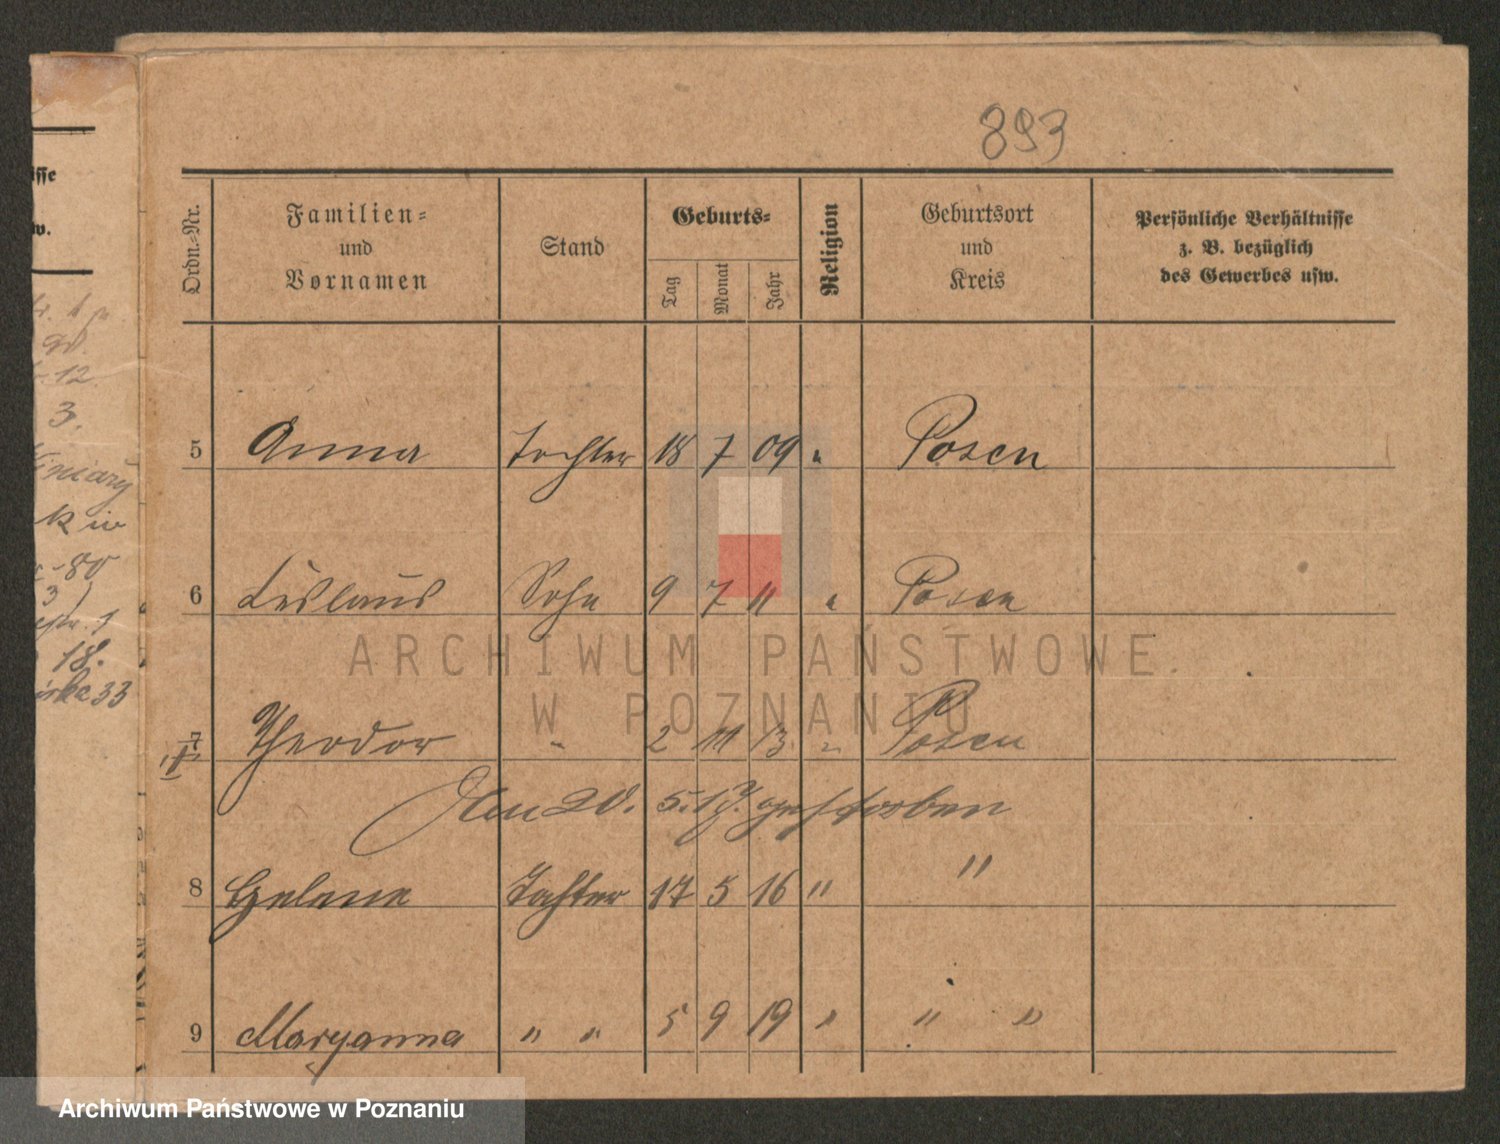 893
Ordn.-Nr.
Familien-
und
Vornamen
Stand
Geburts-
Tag
Monat
Jahr
Religion
Geburtsort
und
Kreis
Persönliche Verhältnisse
z. B. bezüglich
des Gewerbes usw.
5 Anna Tochter 18 7 09 " Posen
6 Lislaus Sohn 9 7 11 " Posen
7 Theodor " 2 11 13 " Posen
Den 20. 5. 17. gestorben
8 Helene Tochter 17 5 16 " "
9 Maryanna " " 5 9 19 " " "
isse
w.
12
3.
k in
80
3
18.
33
ARCHIWUM PAŃSTWOWE
W POZNANIU
Archiwum Państwowe w Poznaniu